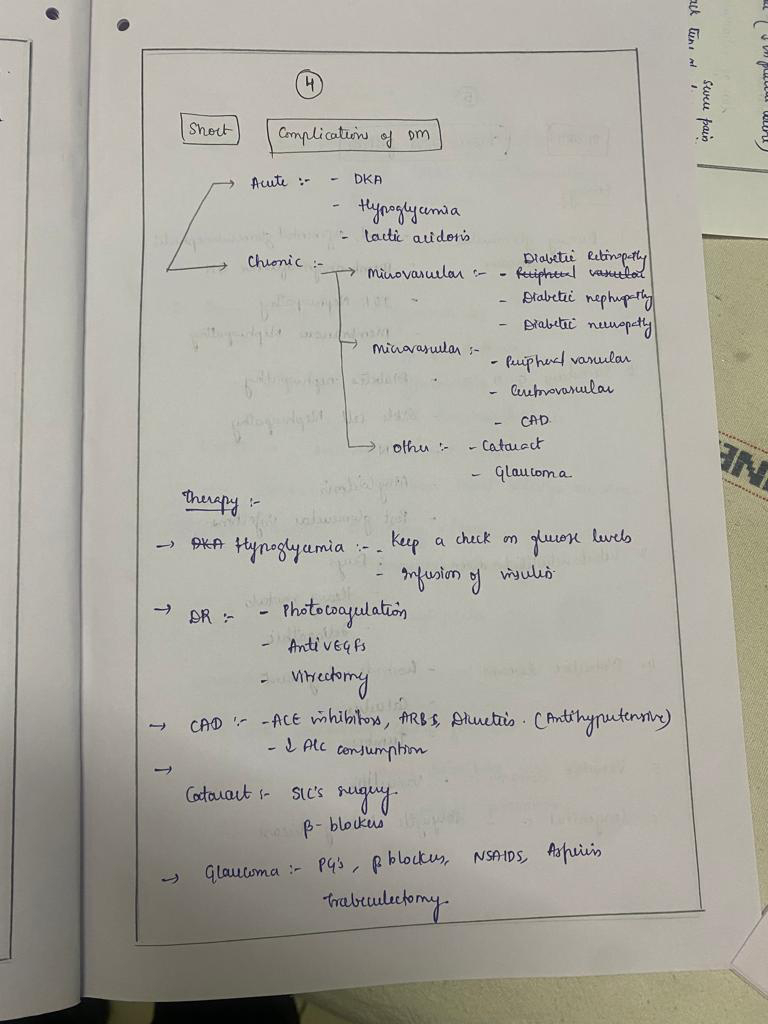 4
Short Complication of DM
Acute :- - DKA
- Hypoglycemia
- Lactic acidosis
Chronic :- Microvascular :- - Diabetic Retinopathy
Peripheral vascular
- Diabetic nephropathy
- Diabetic neuropathy
Microvascular :-
- Peripheral vascular
- Cerebrovascular
- CAD
Other :- - Cataract
- Glaucoma
Therapy :-
→ DKA Hypoglycemia :- - Keep a check on glucose levels
- Infusion of insulin
→ DR :- - Photocoagulation
- Anti VEGFs
- Vitrectomy
→ CAD :- - ACE inhibitors, ARBs, Diuretics. (Antihypertensive)
- ↓ Alc consumption
→
Cataract :- SIC's surgery
β-blockers
→ Glaucoma :- PG's, β blockers, NSAIDS, Asperin
Trabeculectomy
severe pain
INE